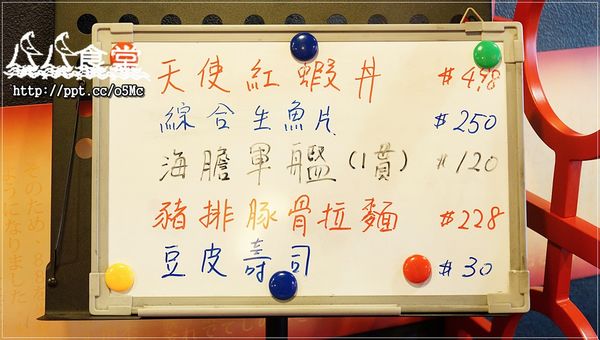 八八食堂
http://ppt.cc/o5Mc
天使紅蝦丼 #498
綜合生魚片 #250
海膽軍艦(1貫) #120
豬排豚骨拉麵 #228
豆皮壽司 #30
そのため
ようになりました